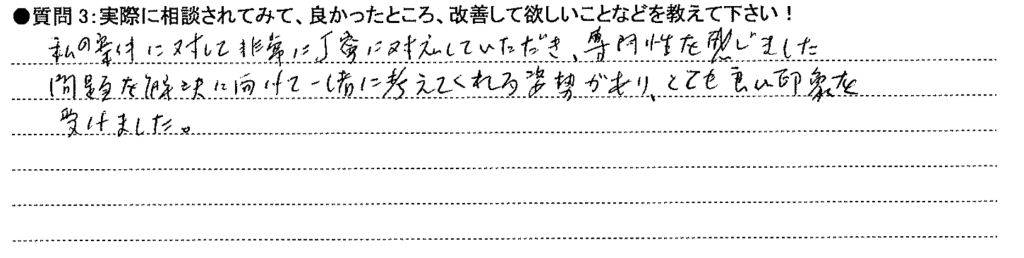 ●質問3:実際に相談されてみて、良かったところ、改善して欲しいことなどを教えて下さい！
私の案件に対して非常に丁寧に対応していただき、専門性を感じました
問題を解決に向けて一緒に考えてくれる姿勢があり、とても良い印象を
受けました。